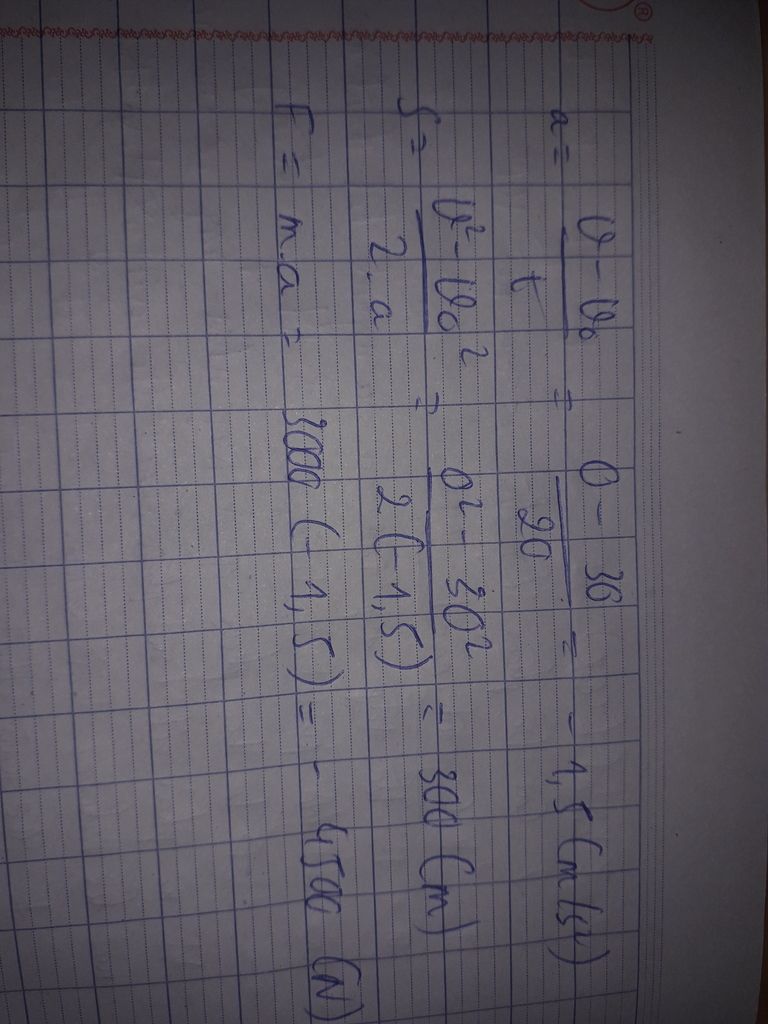 a = \frac{v - v_0}{t} = \frac{0 - 30}{20} = -1,5 (m/s²)
S = \frac{v² - v_0²}{2.a} = \frac{0² - 30²}{2(-1,5)} = 300 (m)
F = m.a = 3000 (-1,5) = - 4500 (N)
®